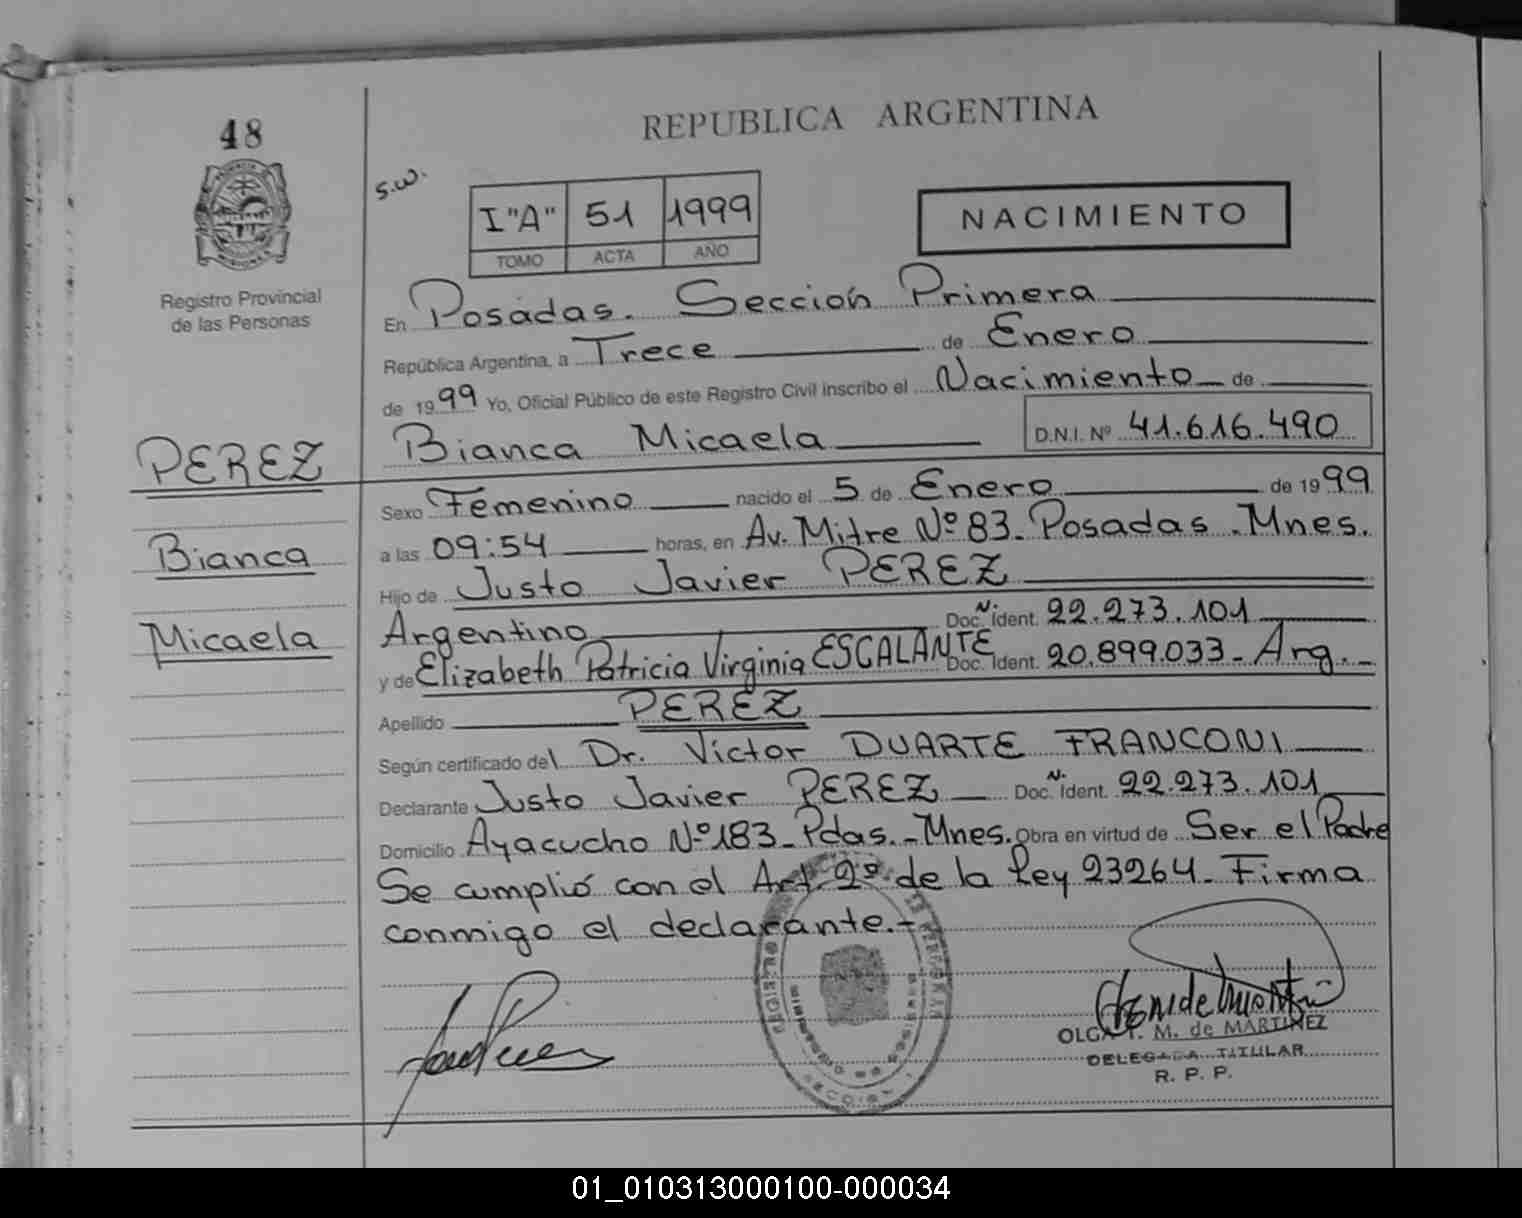 48
REPUBLICA ARGENTINA
s.w.
I "A" 51 1999
TOMO ACTA AÑO
NACIMIENTO
Registro Provincial
de las Personas
En Posadas. Sección Primera
República Argentina, a Trece de Enero
de 1999 Yo, Oficial Público de este Registro Civil inscribo el Nacimiento de
Bianca Micaela D.N.I. Nº 41.616.490
PEREZ
Bianca
Micaela
Sexo Femenino nacido el 5 de Enero de 1999
a las 09:54 horas, en Av. Mitre Nº 83. Posadas - Mnes.
Hijo de Justo Javier PEREZ
Argentino Doc. N. Ident. 22.273.101
y de Elizabeth Patricia Virginia ESCALANTE Doc. Ident. 20.899.033 - Arg. -
Apellido PEREZ
Según certificado del Dr. Victor DUARTE FRANCONI
Declarante Justo Javier PEREZ Doc. N. Ident. 22.273.101
Domicilio Ayacucho Nº 183 - Pdas. - Mnes. Obra en virtud de Ser el Padre
Se cumplió con el Art. 2º de la Ley 23264 - Firma
conmigo el declarante.-
OLGA M. de MARTINEZ
DELEGADA TITULAR
R. P. P.
01_010313000100-000034